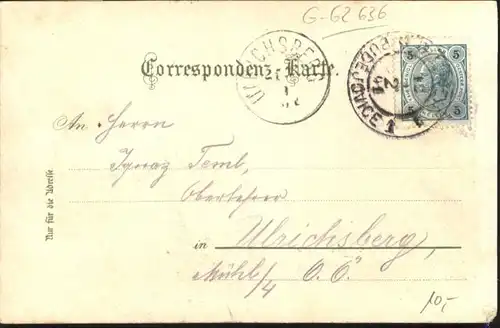 G-62 636
Correspondenz-Karte.
5 5
5 5
An Herrn
Ignaz Teml,
Oberlehrer
in Ulrichsberg,
Mühl/4 O. Ö.
Nur für die Adresse
10,-